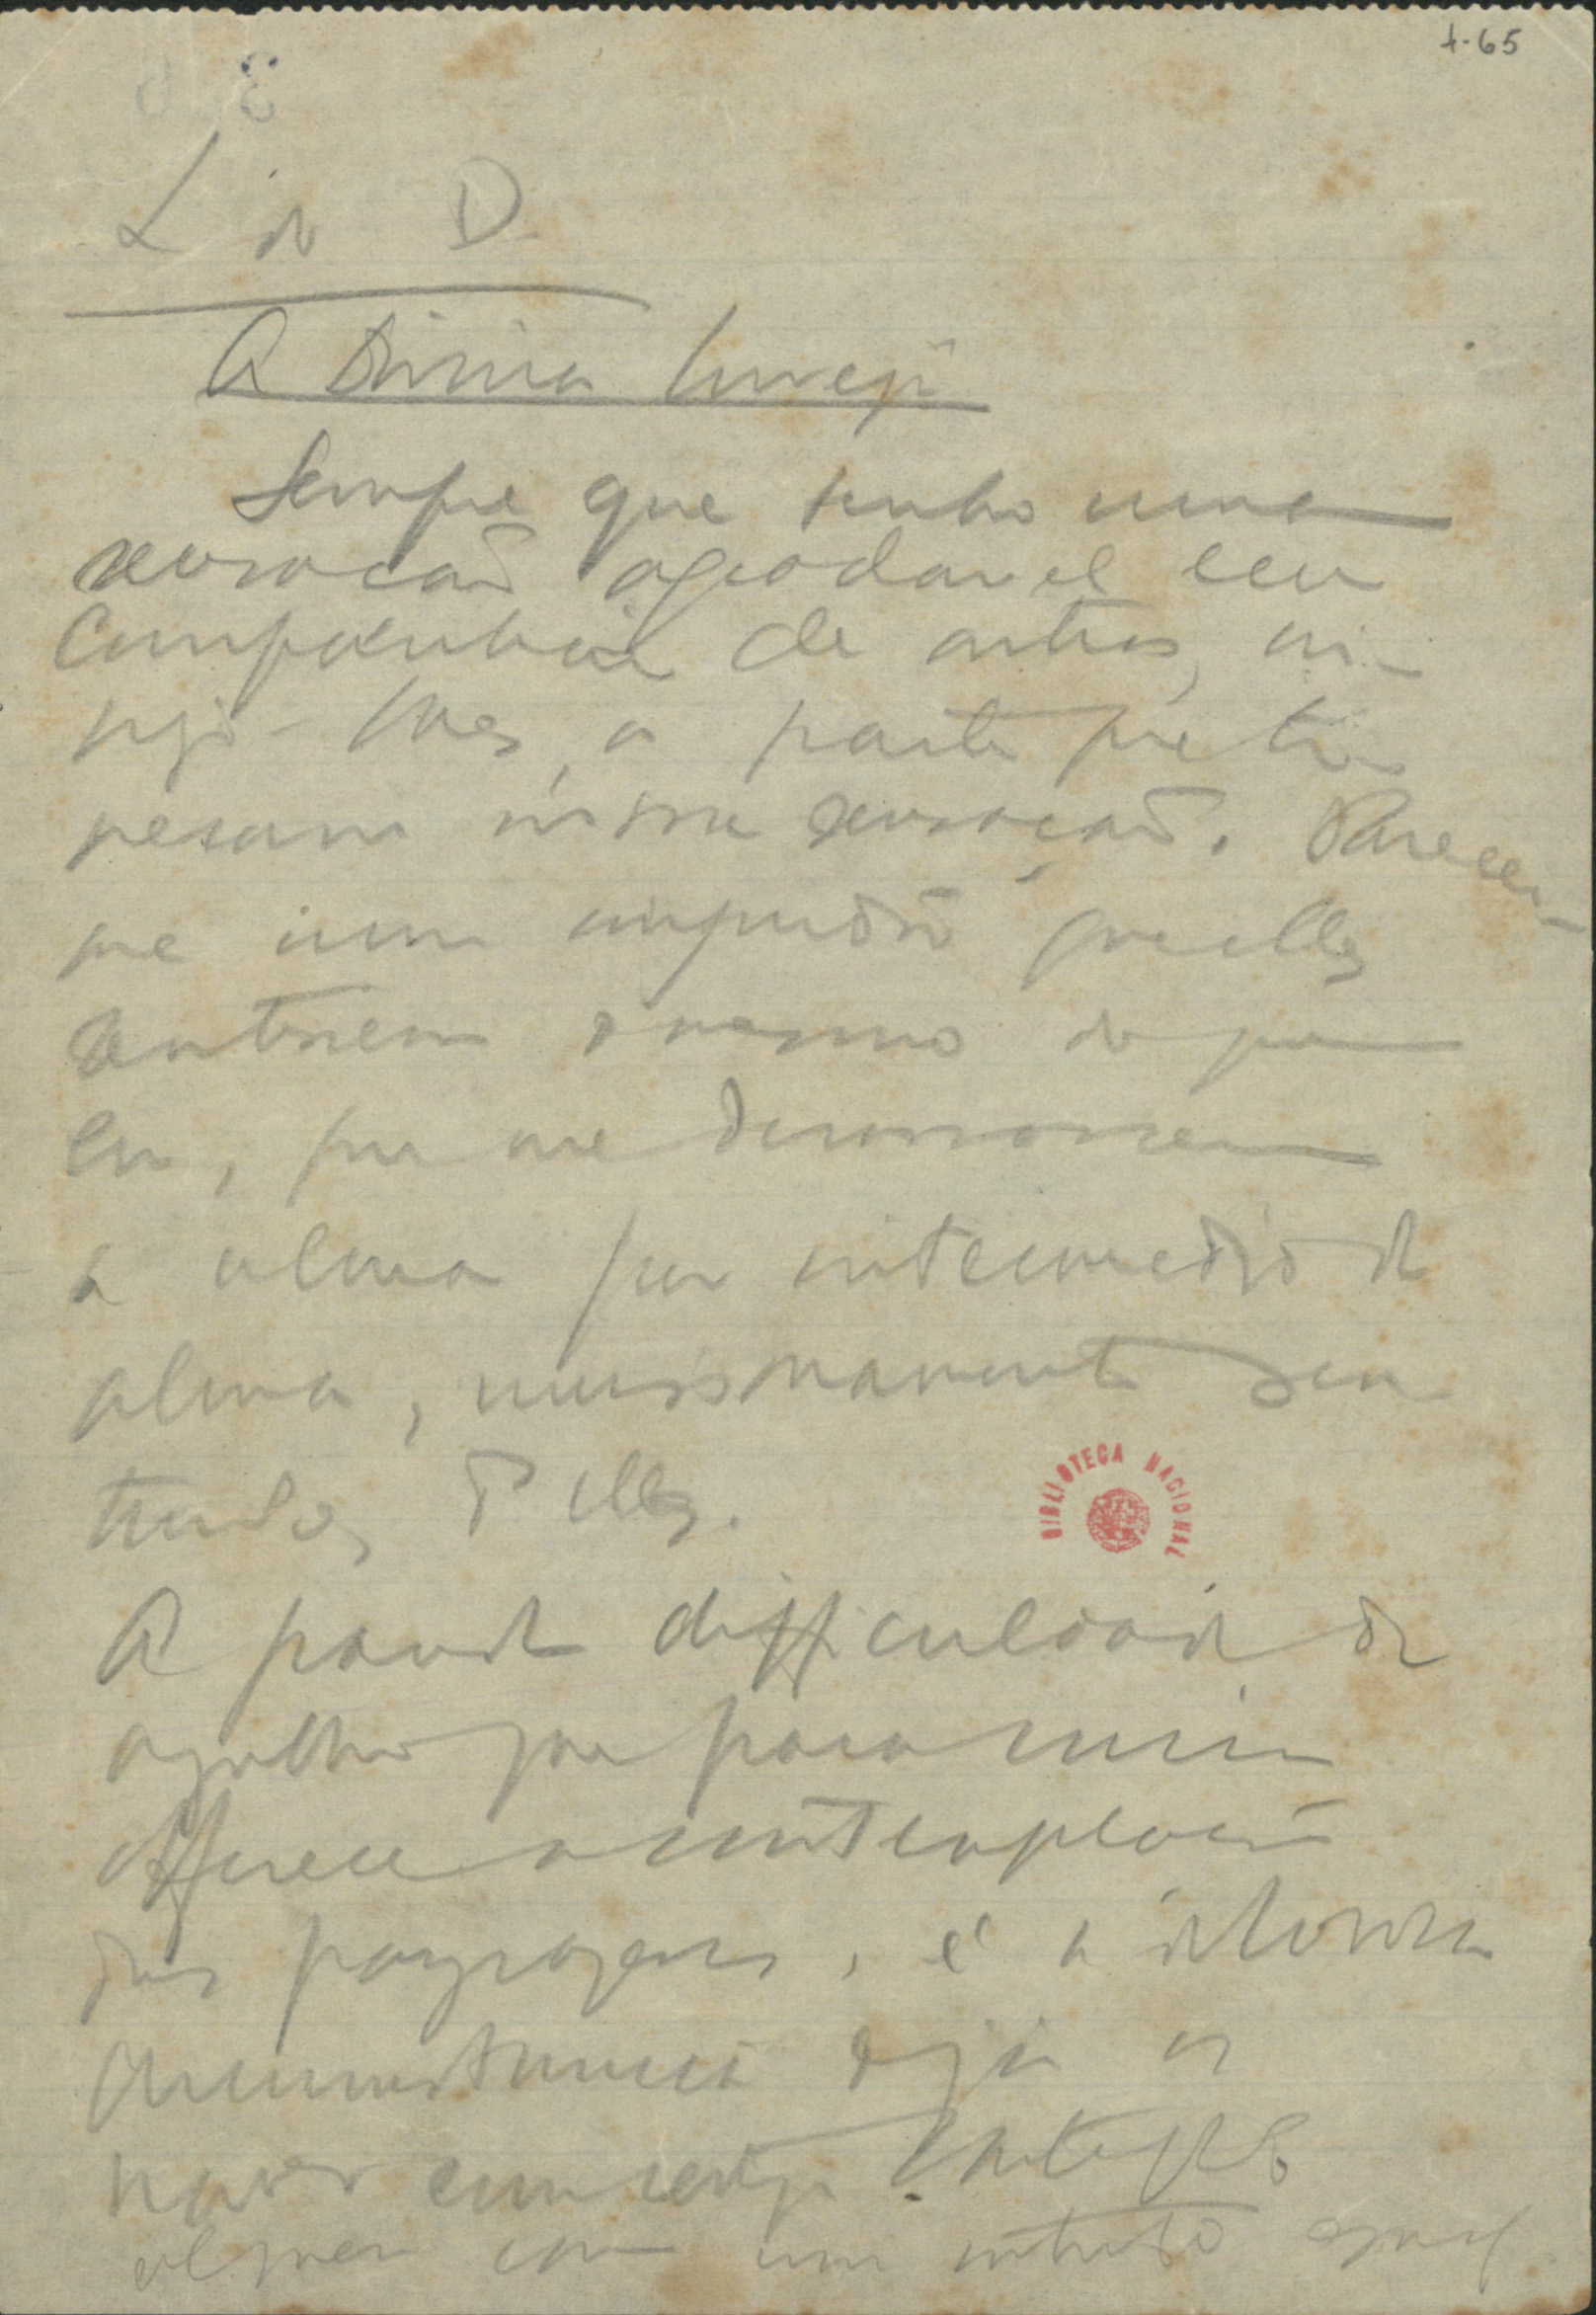 4-65
L. do D.
A Divina Inveja
Sempre que tenho uma
sensação agradavel em
companhia de outros, in-
vejo-lhes a parte que ti-
veram nessa sensação. Parece-
me um impudor que elles
sentissem o mesmo do que
eu, que me devassassem
a alma por intermedio da
alma, unisonamente sen-
tindo, d'elles.
A grande difficuldade do
orgulho que para mim
offerece a contemplação
das paysagens, é a dolorosa
circumstancia de já as
haver com certeza
alguem com um intuito egual
BIBLIOTECA NACIONAL